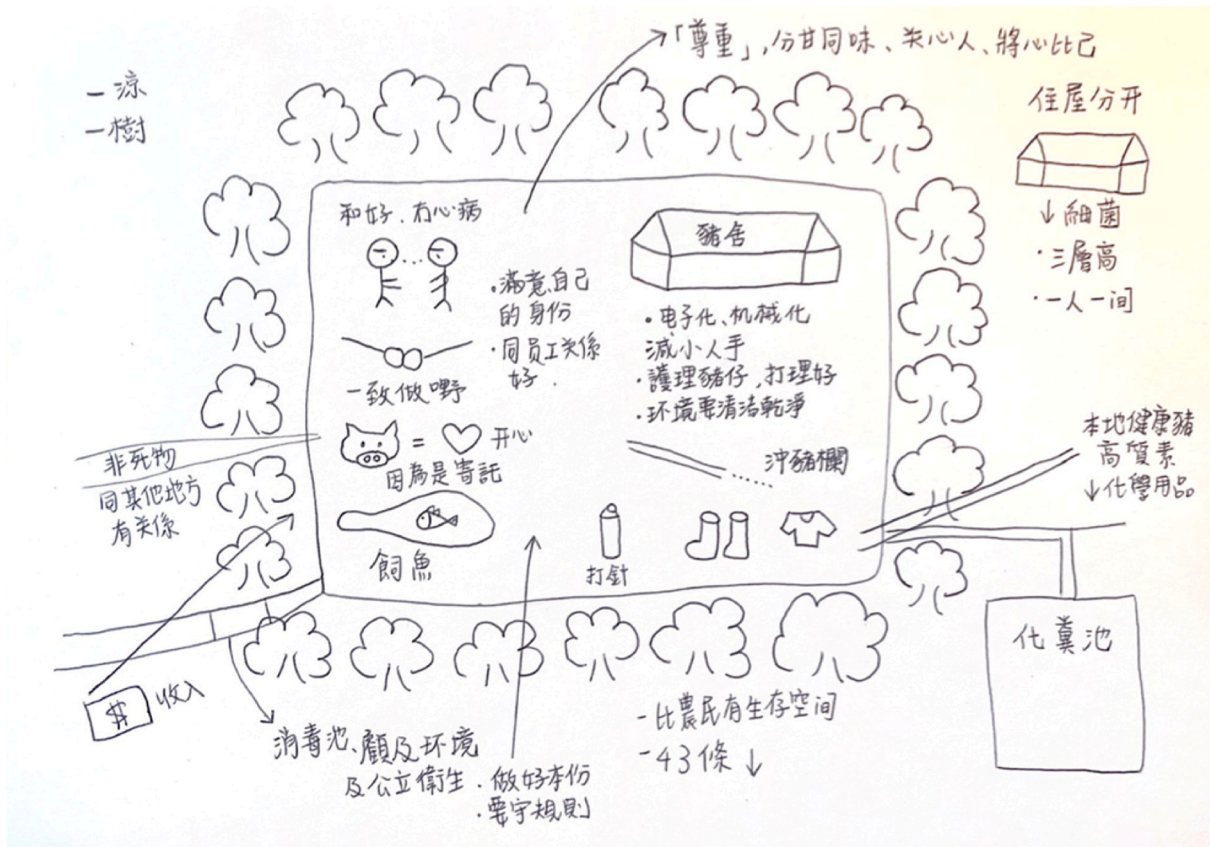 「尊重」,分甘同味、关心人、將心比己
- 涼
- 樹
住屋分开
↓細菌
·三層高
·一人一间
和好、冇心病
·滿意自己
的身份
·同员工关係
好.
一致做嘢
= 开心
因為是寄託
飼魚
豬舍
·电子化、机械化
減小人手
·護理豬仔,打理好
·环境要清洁乾淨
沖豬欄
打針
非死物
同其他地方
有关係
本地健康豬
高質素
↓化學用品
化糞池
$ 收入
消毒池、顧及环境
及公立衛生
·做好本份
·要守規則
- 比農民有生存空间
- 43條 ↓